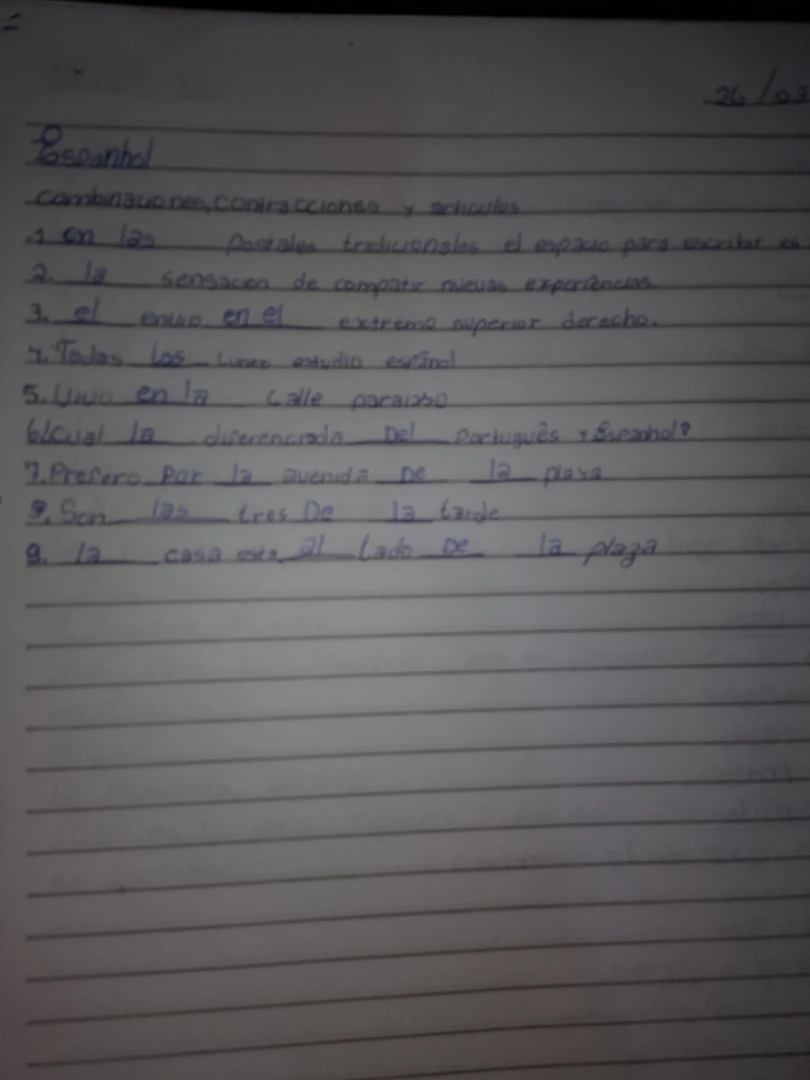 26/03
Espanhol
combinaciones, contracciones y articulos
1 en las postales tradicionales el espacio para escribir es
2. la sensacion de compatir nuevas experiências
3. el envio en el extremo superior derecho.
4. Todas los lunes estudio español
5. Vivo en la calle paraisso
6. ¿Cual la diferenciada Del Português y Espanhol?
7. Prefero por la avenida De la playa
8. Son las tres De la tarde
9. la casa esta al lado De la plaza